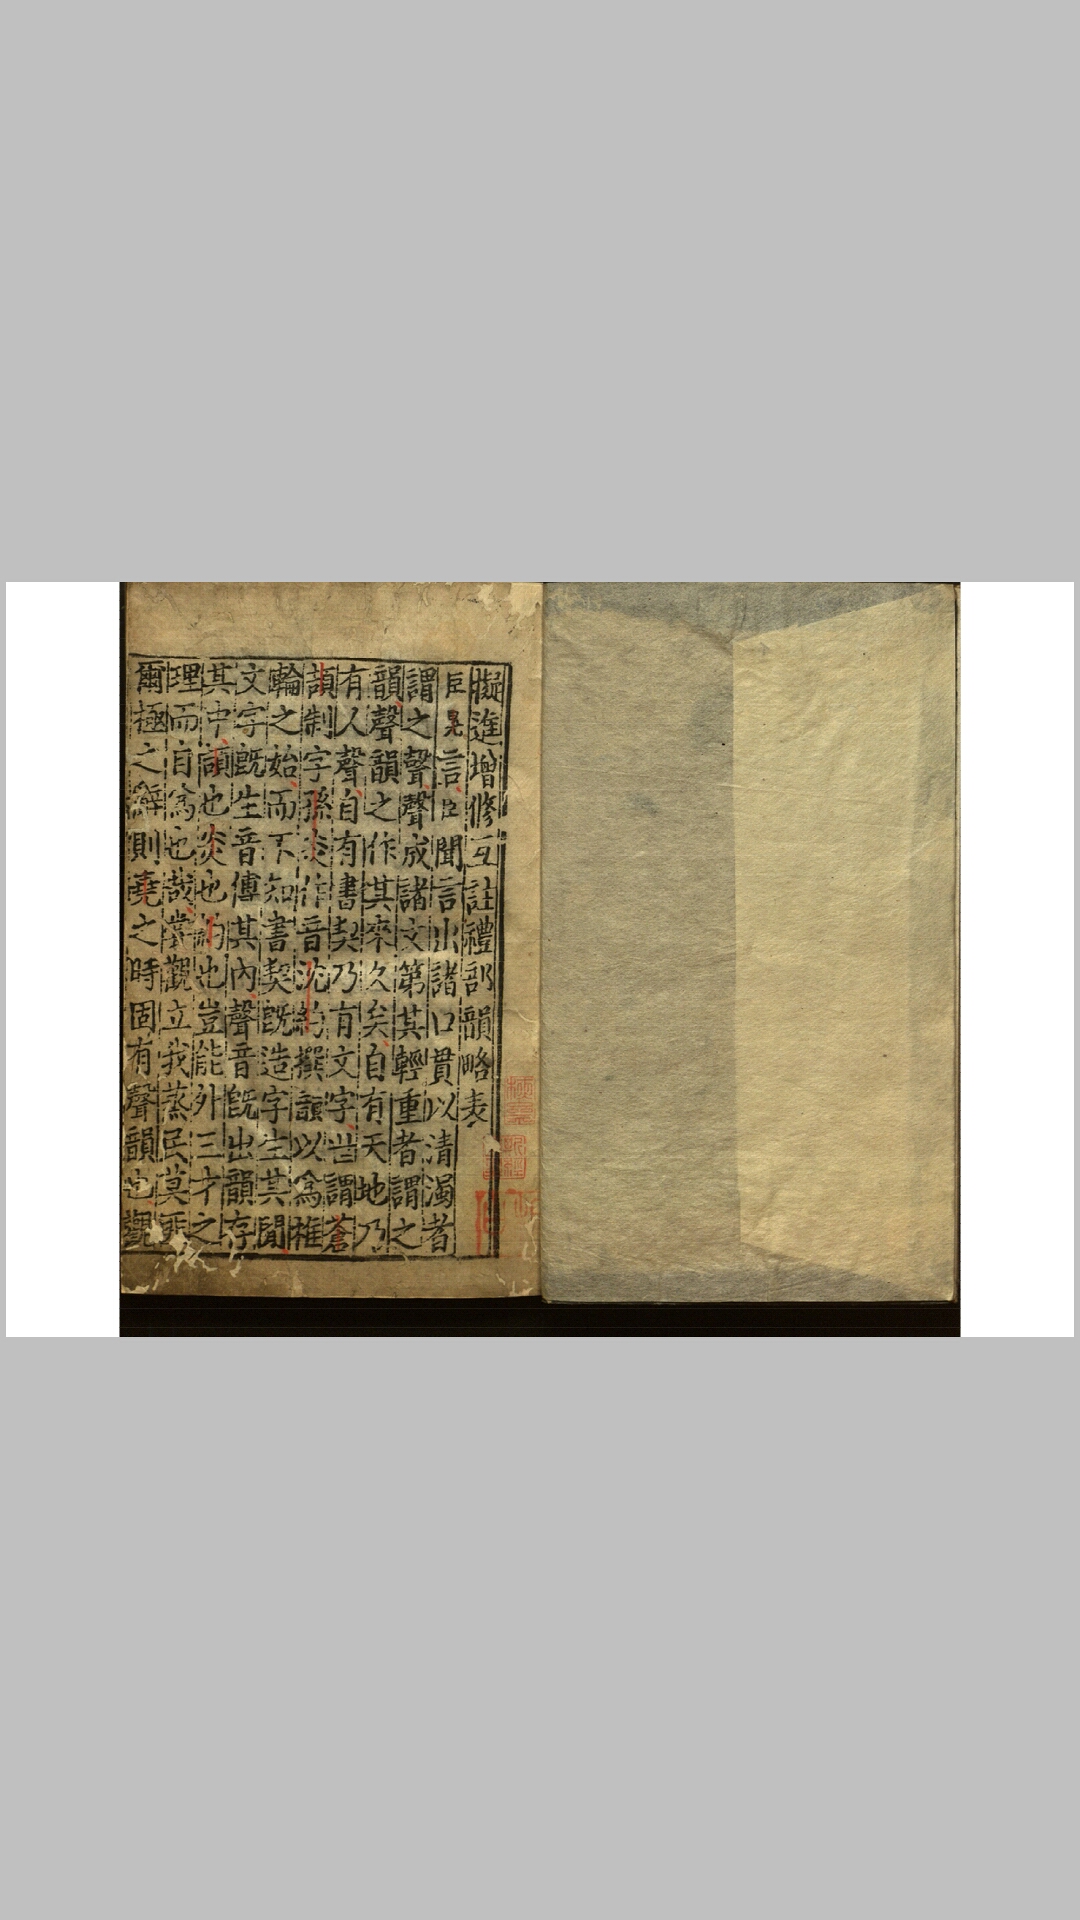 擬進增修互註禮部韻略表
臣晃言臣聞言出諸口貫以清濁者
謂之聲聲成諸文第其輕重者謂之
韻聲韻之作其來久矣自有天地乃
有人聲自有書契乃有文字世謂蒼
頡制字孫炎作音沈約撰韻以爲椎
輪之始而不知書契旣造字生其間
文字旣生音傳其內聲音旣出韻存
其中頡也炎也約也豈能外三才之
理而自爲也哉嘗觀立我蒸民莫匪
爾極之辭則堯之時固有聲韻也觀